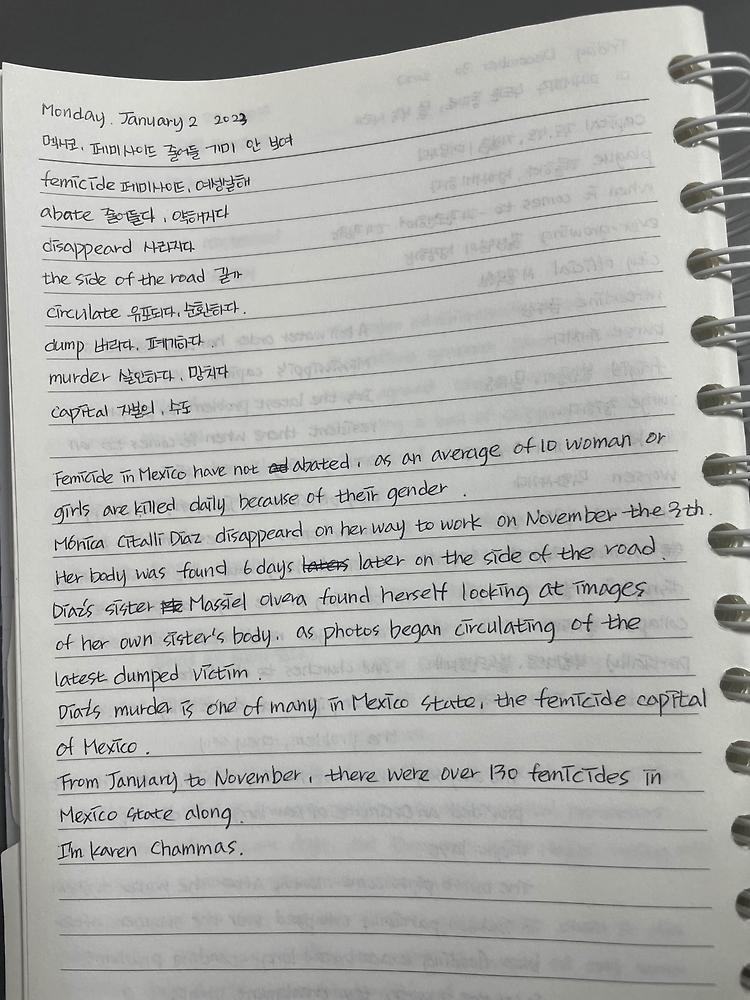 Monday. January 2 2023
멕시코, 페미사이드 줄어들 기미 안 보여
femicide 페미사이드, 여성살해
abate 줄어들다, 약해지다
disappeard 사라지다
the side of the road 길가
circulate 유포되다, 순환하다.
dump 버리다, 폐기하다.
murder 살인하다, 망치다
capital 자본의, 수도
Femicide in Mexico have not abated, as an average of 10 woman or
girls are killed daily because of their gender.
Mónica Citalli Díaz disappeard on her way to work on November the 3th.
Her body was found 6 days later on the side of the road.
Díaz's sister Massiel olvera found herself looking at images
of her own sister's body, as photos began circulating of the
latest dumped victim.
Díaz's murder is one of many in Mexico state, the femicide capital
of Mexico.
From January to November, there were over 130 femicides in
Mexico state along.
I'm Karen Chammas.